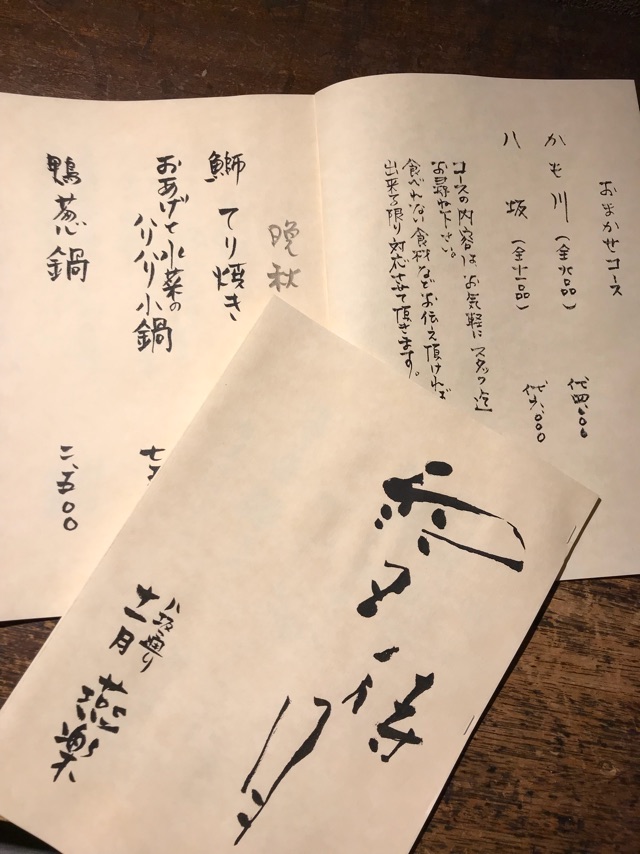 おまかせコース
かも川(全九品) 代四、〇〇〇
八坂(全十一品) 代六、〇〇〇
コースの内容は お気軽に スタッフ迄
お尋ね下さい。
食べれない食材などお伝え頂ければ
出来る限り対応させて頂きます。
晩秋
鰤 てり焼き
おあげと水菜の
ハリハリ小鍋 七
鴨葱鍋 二、五〇〇
雪待月
八坂通り
十一月 燕楽